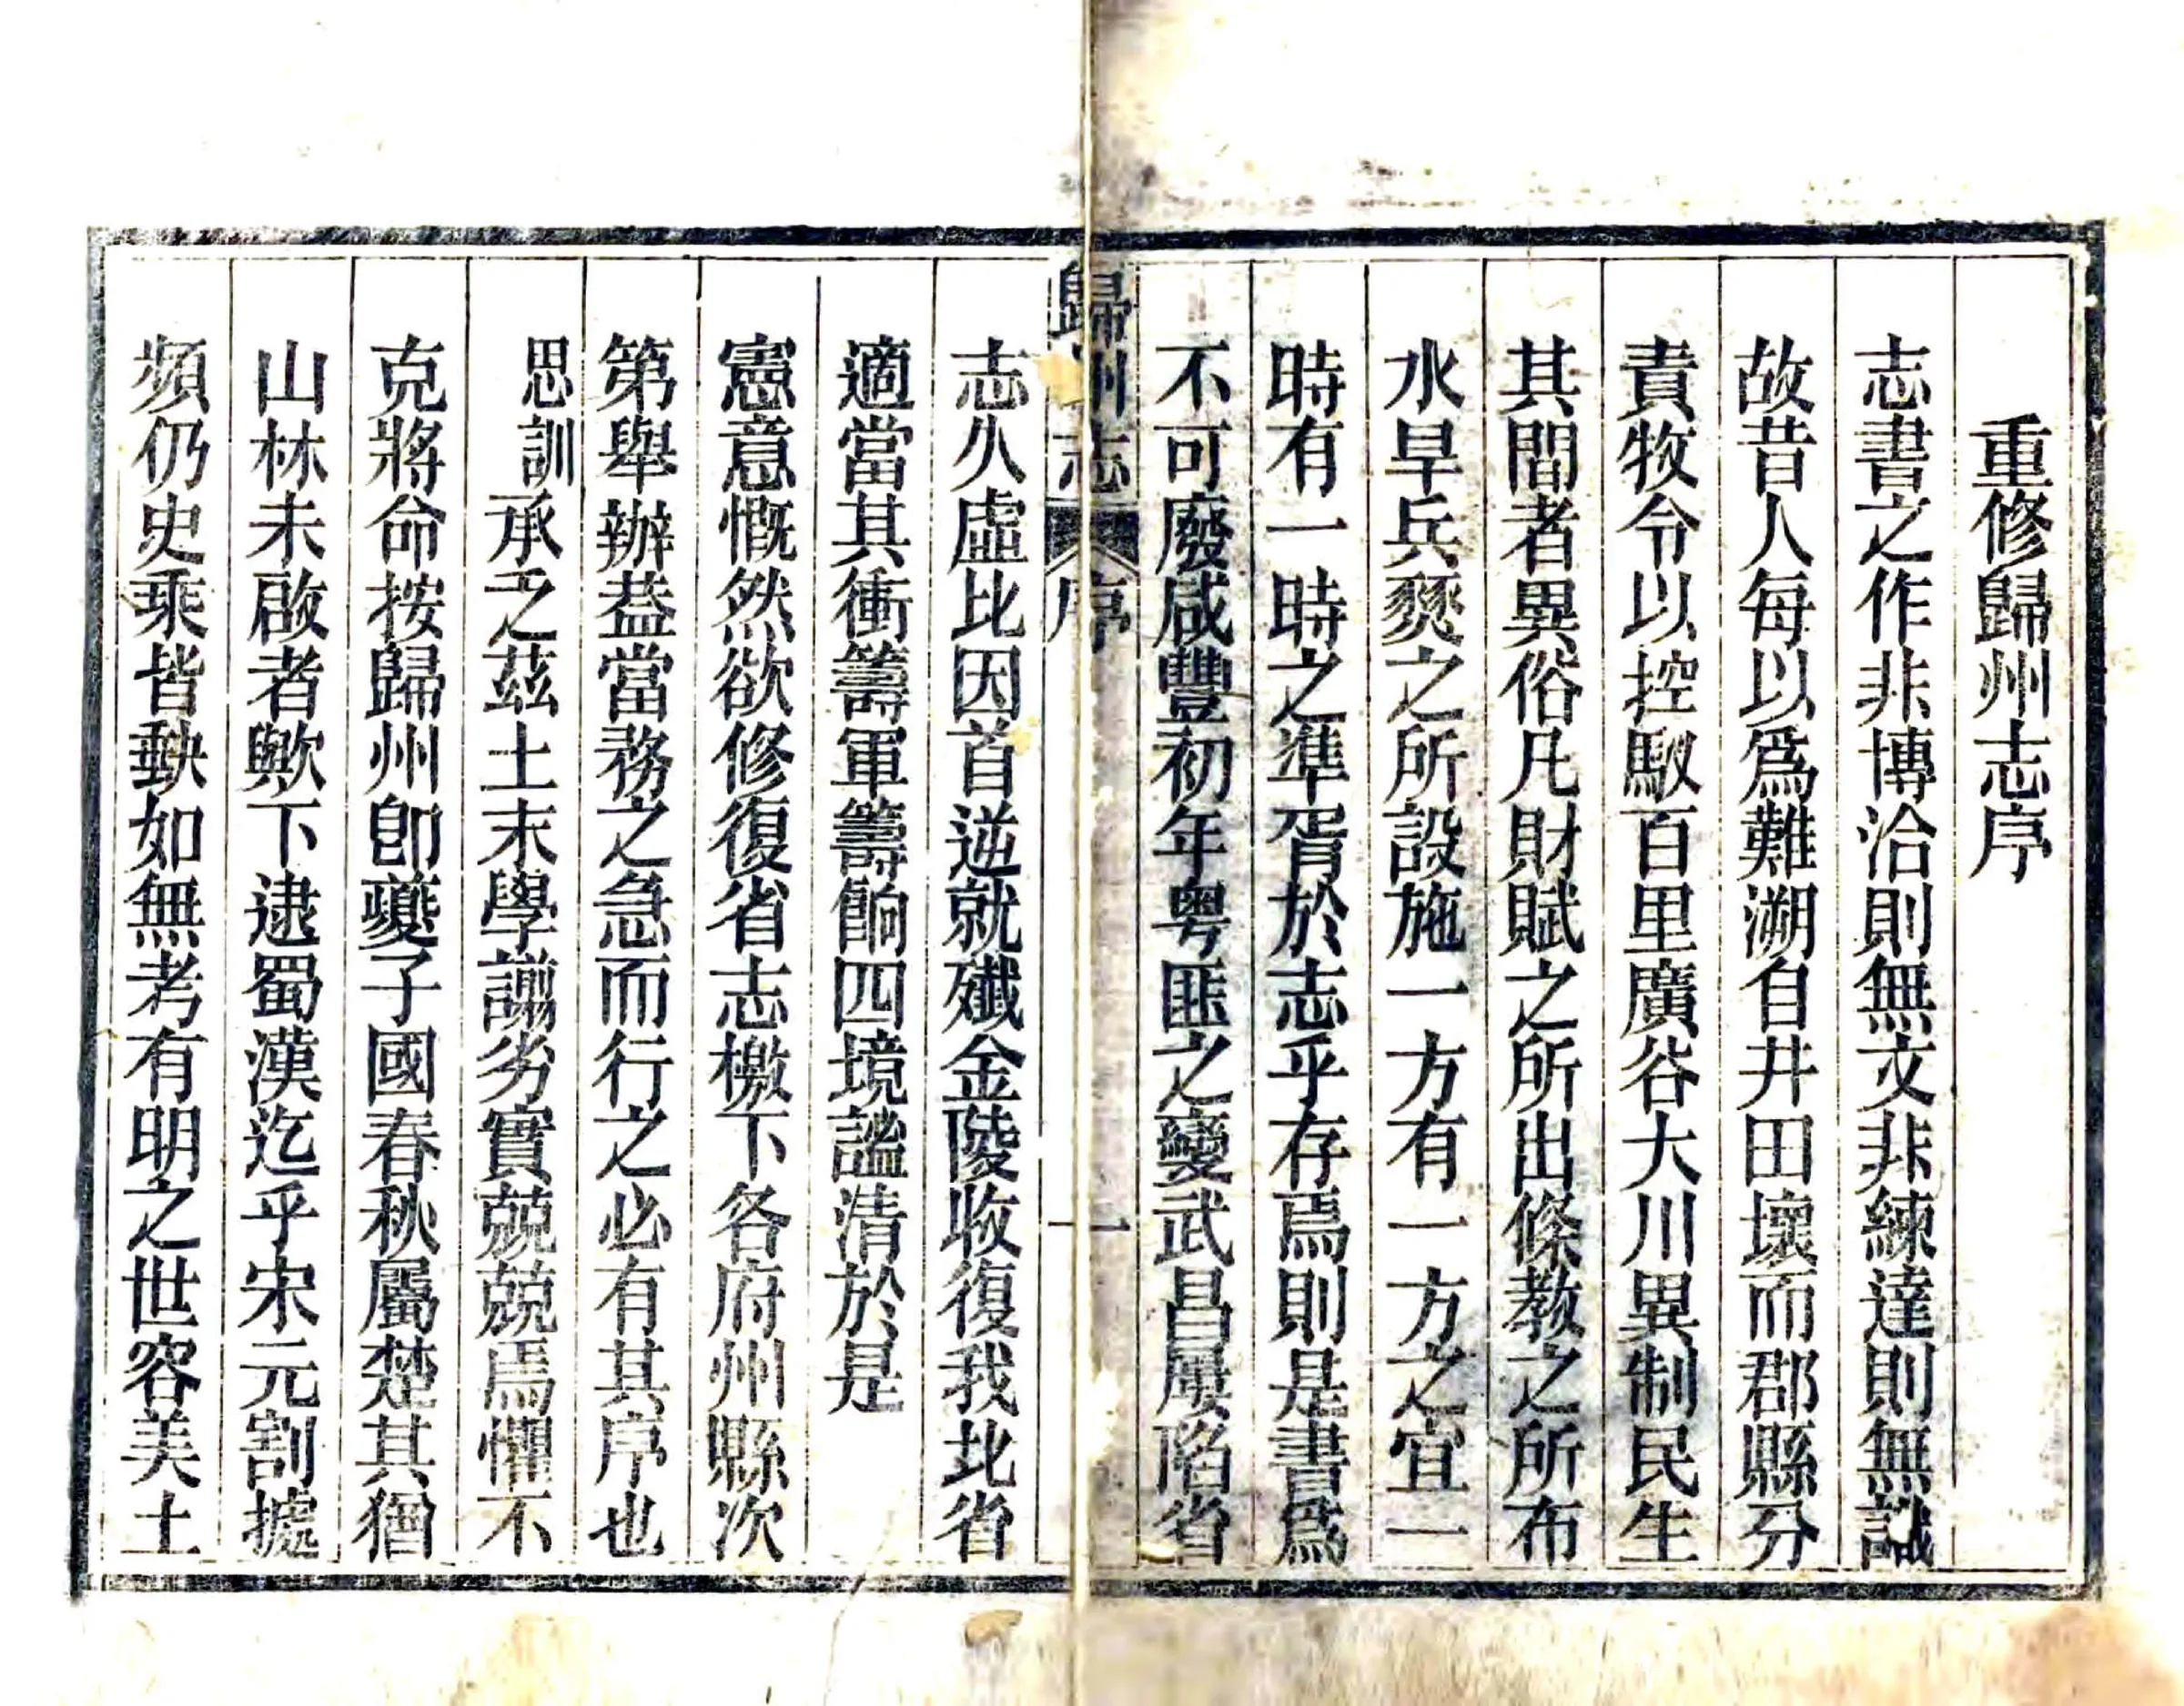 重修歸州志序
志書之作非博洽則無文非練達則無識
故昔人每以爲難溯自井田壞而郡縣分
責牧令以控馭百里廣谷大川異制民生
其間者異俗凡財賦之所出條教之所布
水旱兵燹之所設施一方有一方之宜一
時有一時之準胥於志乎存焉則是書爲
不可廢咸豐初年粤匪之變武昌屢陷省
歸州志 序 一
志久虛比因首逆就殲金陵收復我北省
適當其衝籌軍籌餉四境謐清於是
憲意慨然欲修復省志檄下各府州縣次
第舉辦葢當務之急而行之必有其序也
思訓承乏茲土末學譾劣實兢兢焉懼不
克將命按歸州卽夔子國春秋屬楚其猶
山林未啟者歟下逮蜀漢迄乎宋元割據
頻仍史乘皆軼如無考有明之世容美土